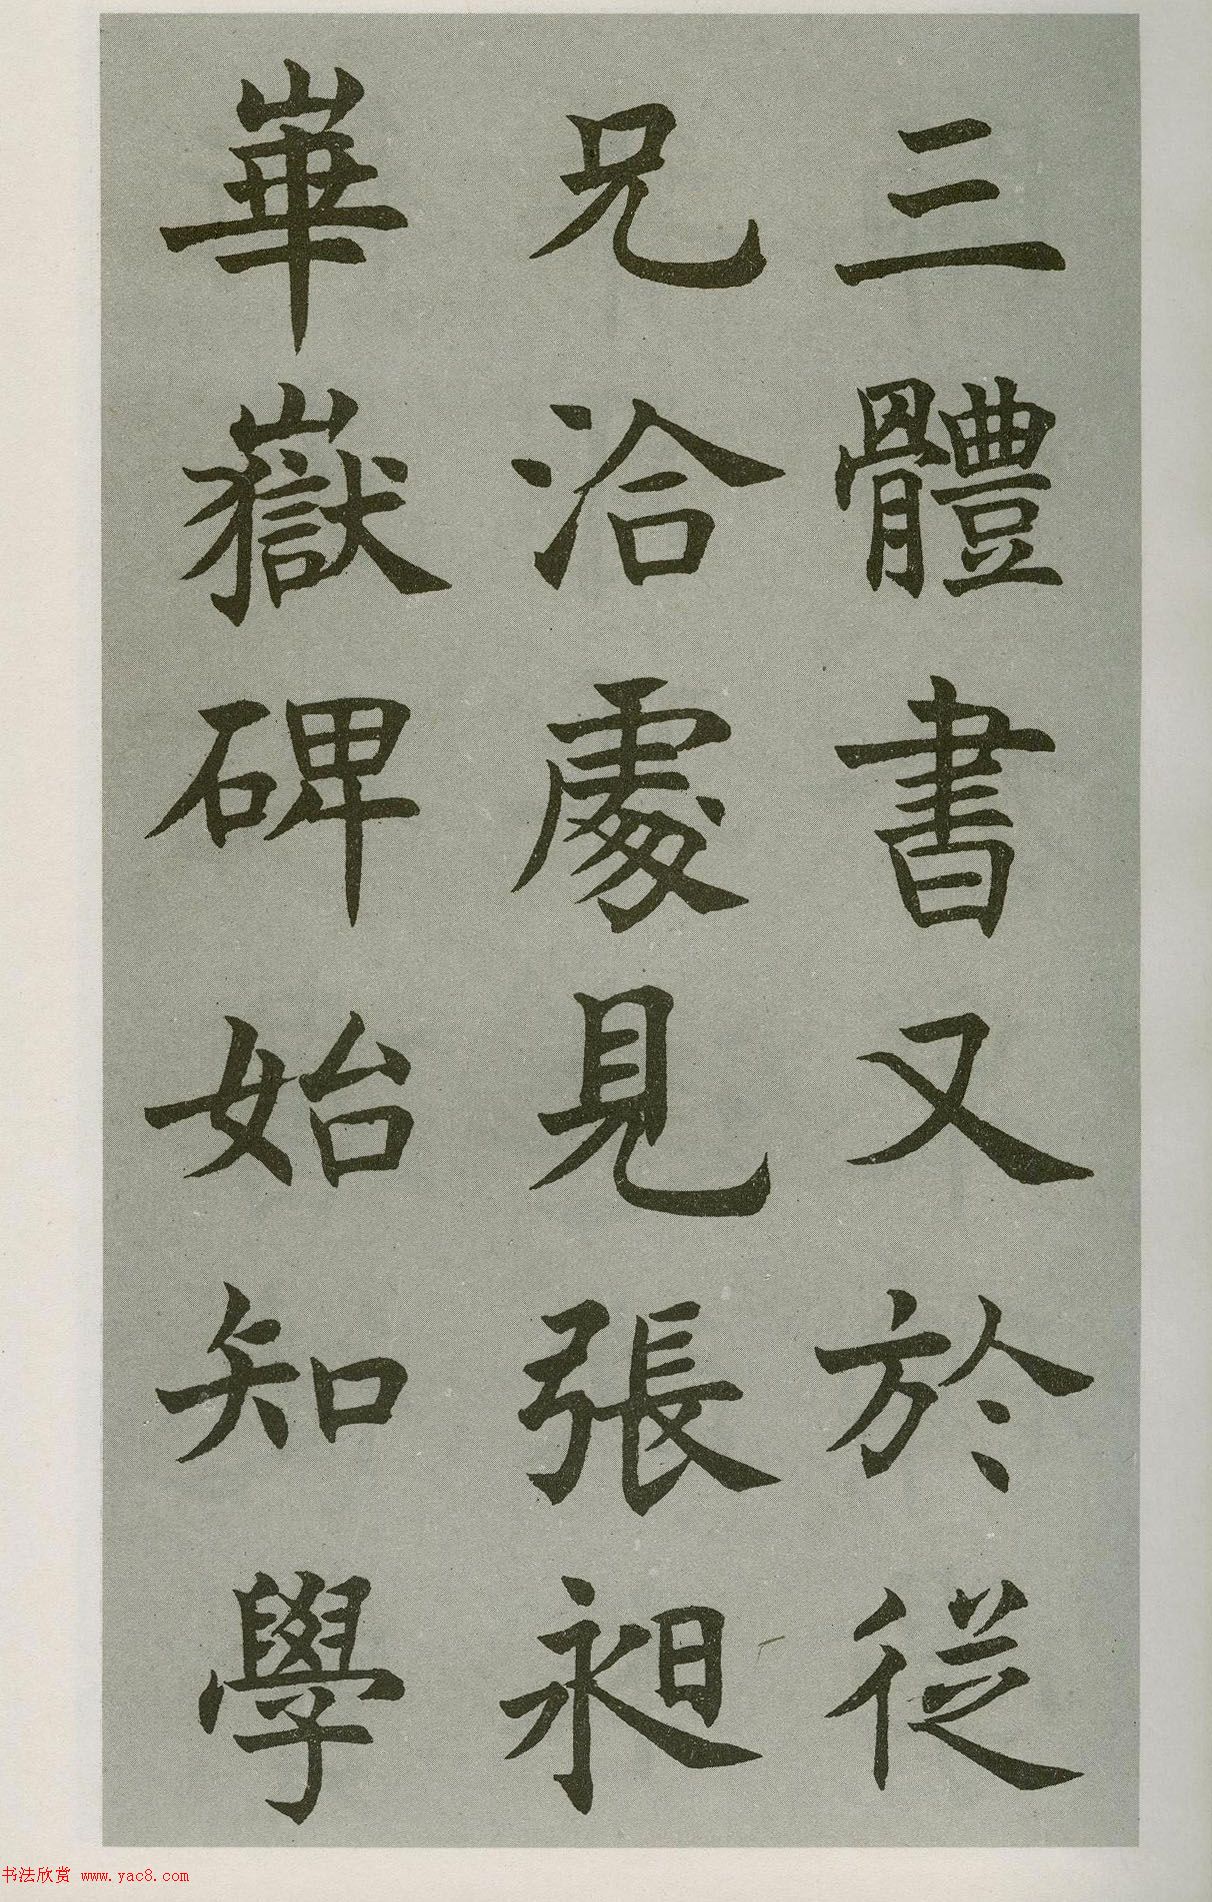 三體書又於從
兄洽處見張昶
華嶽碑始知學
书法欣赏 www.yac8.com